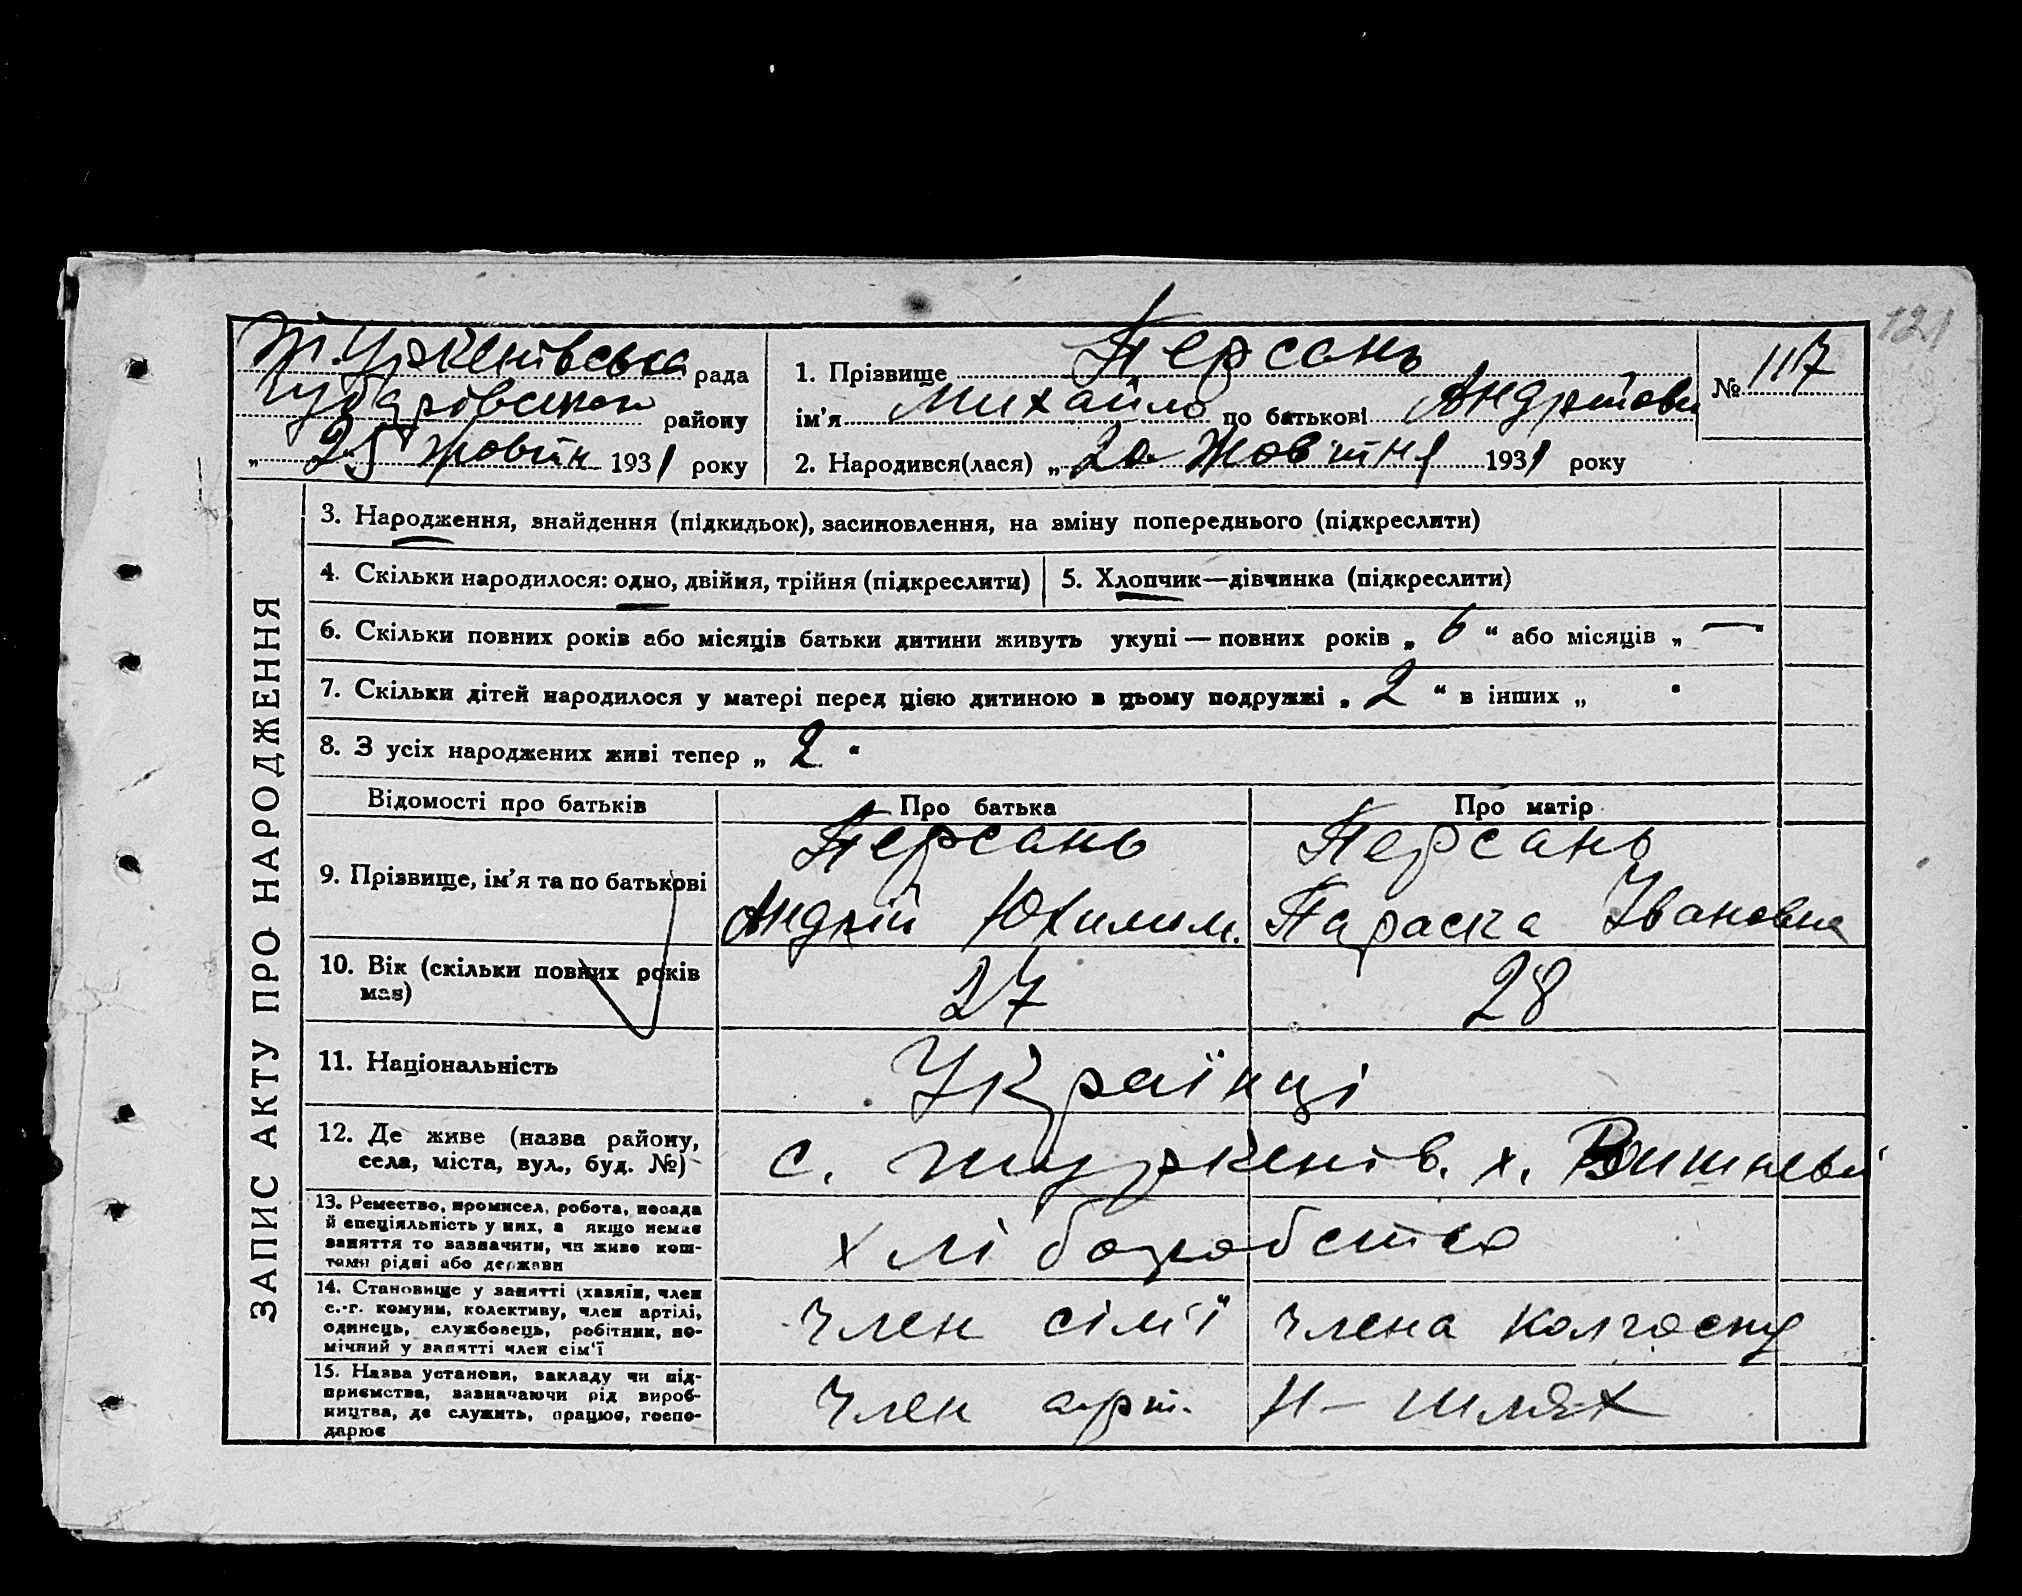 121
Т. Уркенівська рада
Чубарівського району
„ 25 " Жовтн 1931 року
1. Прізвище Персань
ім'я Михайло по батькові Андрійови
№ 117
2. Народився(лася) „ 20 Жовтня 1931 року
ЗАПИС АКТУ ПРО НАРОДЖЕННЯ
3. Народження, знайдення (підкидьок), засиновлення, на зміну попереднього (підкреслити)
4. Скільки народилося: одно, двійня, трійня (підкреслити)
5. Хлопчик—дівчинка (підкреслити)
6. Скільки повних років або місяців батьки дитини живуть укупі — повних років „ 6 “ або місяців „ — "
7. Скільки дітей народилося у матері перед цією дитиною в цьому подружжі „ 2 “ в інших „ "
8. З усіх народжених живі тепер „ 2 "
Відомості про батьків Про батька Про матір
9. Прізвище, ім'я та по батькові
Персань
Андрій Юхимим.
Персань
Параска Івановна
10. Вік (скільки повних років
має)
27
28
11. Національність
Українці
12. Де живе (назва району,
села, міста, вул., буд. №)
с. Туркенів. х. Вишневий
13. Ремество, промисел, робота, посада
й спеціяльність у них, а якщо немає
заняття то зазначити, чи живе кош-
тами рідні або держави
хліборобство
14. Становище у занятті (хазяїн, член
с.-г. комуни, колективу, член артілі,
одинець, службовець, робітник, по-
мічний у занятті член сім'ї
Член сім'ї члена колгоспу
15. Назва установи, закладу чи під-
приємства, зазначаючи рід вироб-
ництва, де служить, працює, госпо-
дарює
Член арт. Н-шлях